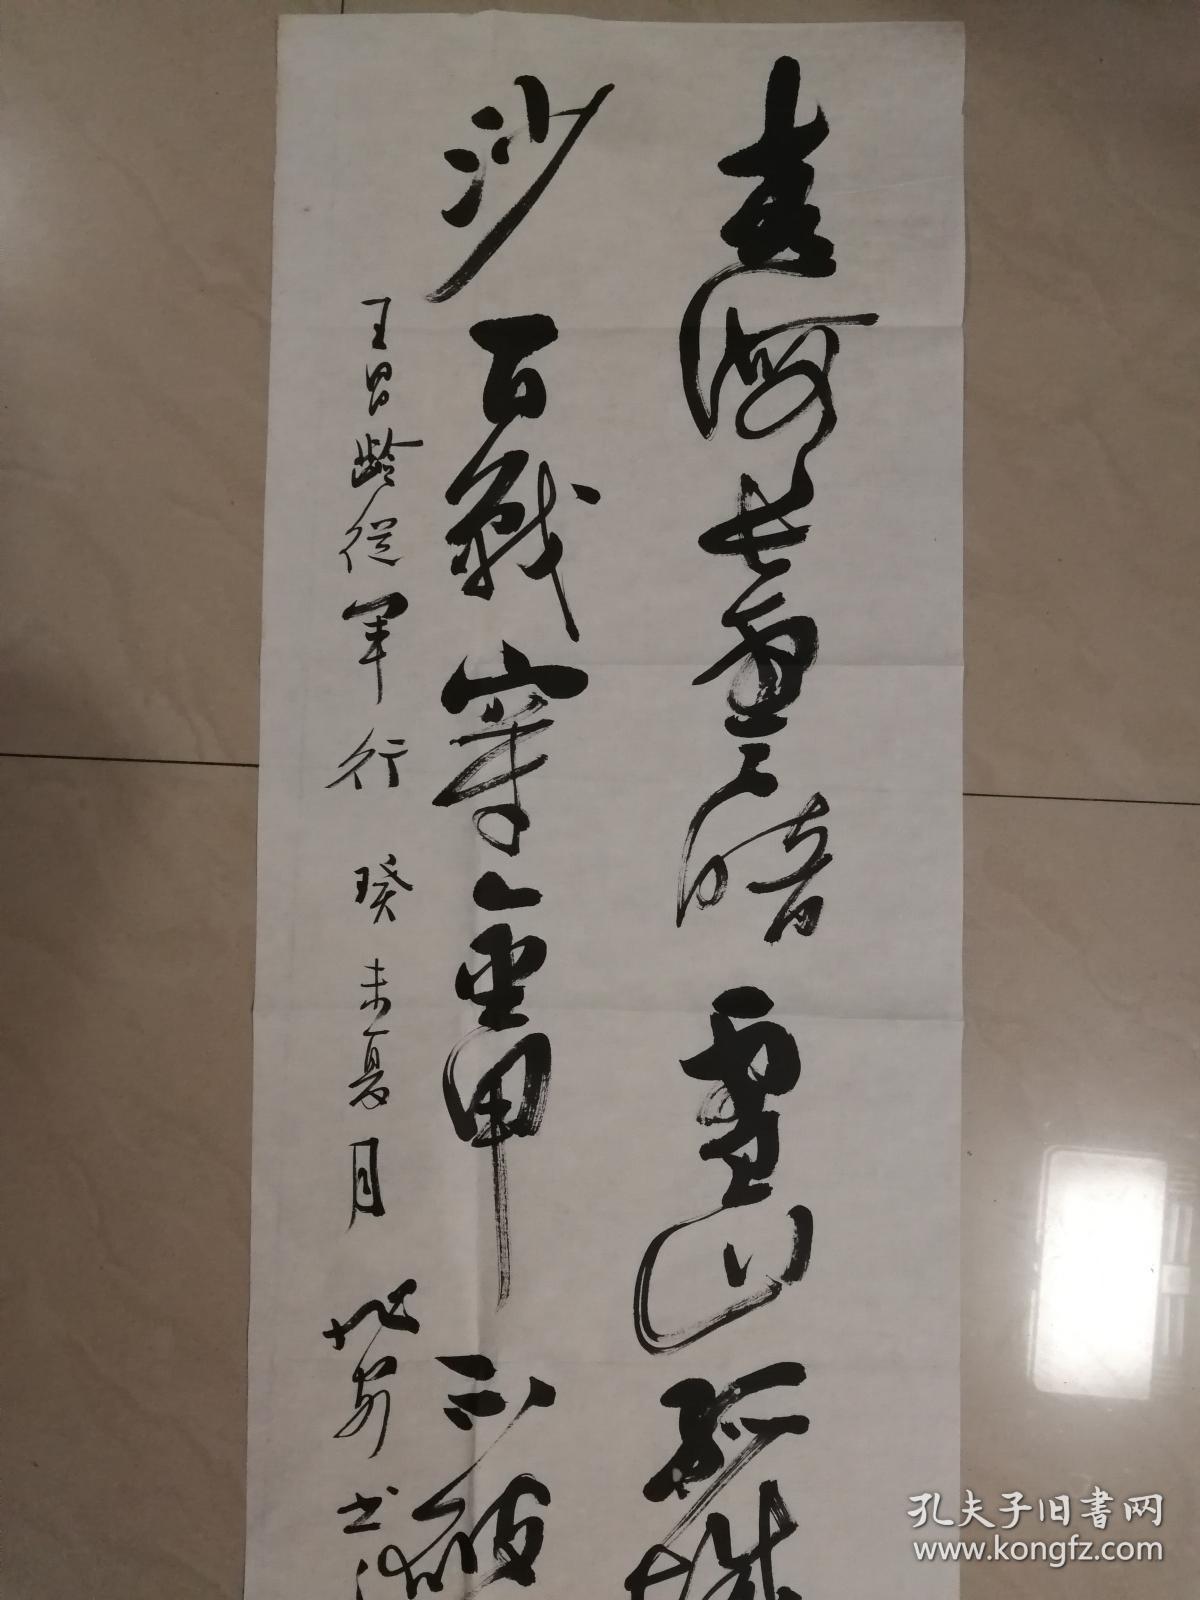 青海长云暗雪山孤城
沙百战穿金甲不破
王昌龄從军行 癸未夏月
书
孔夫子旧书网
www.kongfz.com